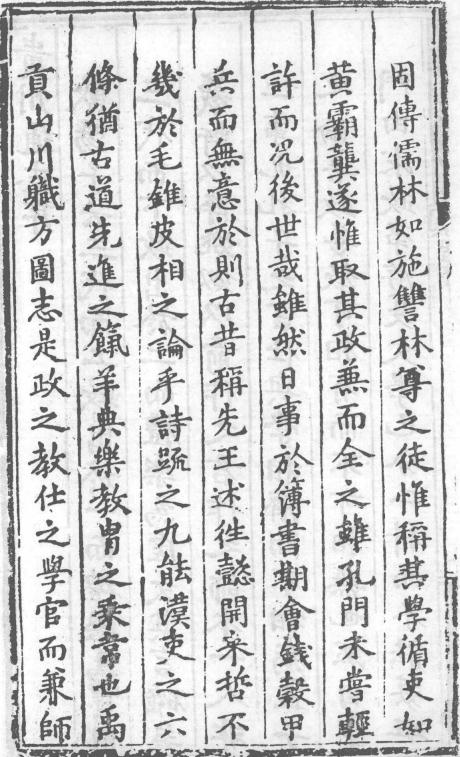 固傳儒林如施讐林尊之徒惟稱其學循吏如
黄霸龔遂惟取其政兼而全之雖孔門未嘗輕
許而况後世哉雖然日事於簿書期會錢穀甲
兵而無意於則古昔稱先王述徃懿開來哲不
幾於毛錐皮相之論乎詩䟽之九能漢吏之六
條猶古道先進之餼羊典樂教胄之秉常也禹
貢山川軄方圖志是政之教仕之學官而兼師